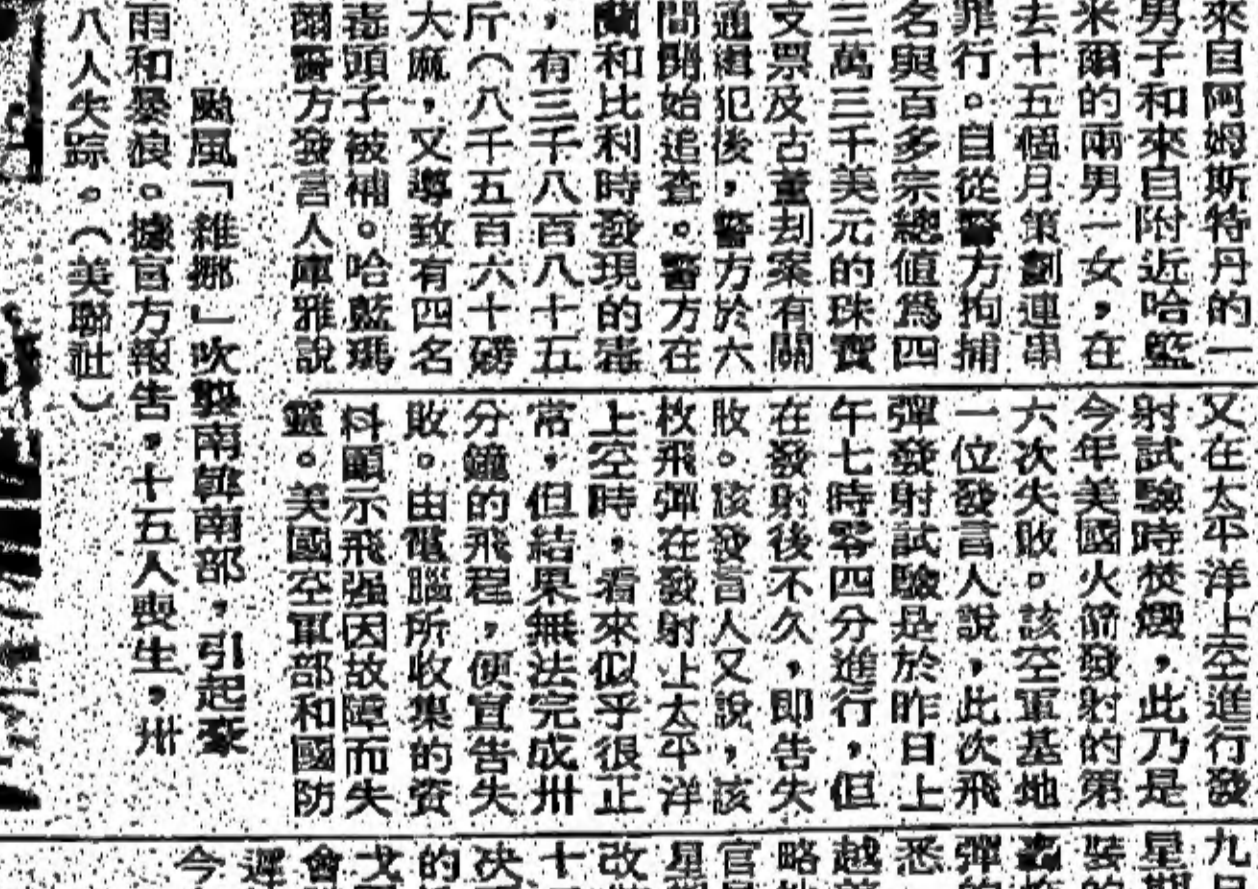 來自阿姆斯特丹的一
男子和來自附近哈藍
米爾的兩男一女,在
去十五個月策劃連串
罪行。自從警方拘捕
名與百多宗總值爲四
三萬三千美元的珠寶
文票及古董刦案有關
通緝犯後,警方於六
間開始追查。警方在
蘭和比利時發現的毒
,有三千八百八十五
斤(八千五百六十磅
大麻,又導致有四名
毒頭子被補。哈藍瑪
爾警方發言人庫雅說
颱風「維娜」吹襲南韓南部,引起豪
雨和暴浪。據官方報告,十五人喪生,卅
八人失踪。(美聯社)
又在太平洋上空進行發
射試驗時焚燬,此乃是
今年美國火箭發射的第
六次失敗。該空軍基地
一位發言人說,此次飛
彈發射試驗是於昨日上
午七時零四分進行,但
在發射後不久,即告失
敗。該發言人又說,該
枚飛彈在發射上太平洋
上空時,看來似乎很正
常,但結果無法完成卅
分鐘的飛程,便宣告失
敗。由電腦所收集的資
料顯示飛强因故障而失
靈。美國空軍部和國防
九
星期
裝
彈
悉
越
略
官
星
改
十
决
的
戈
會
遲
今